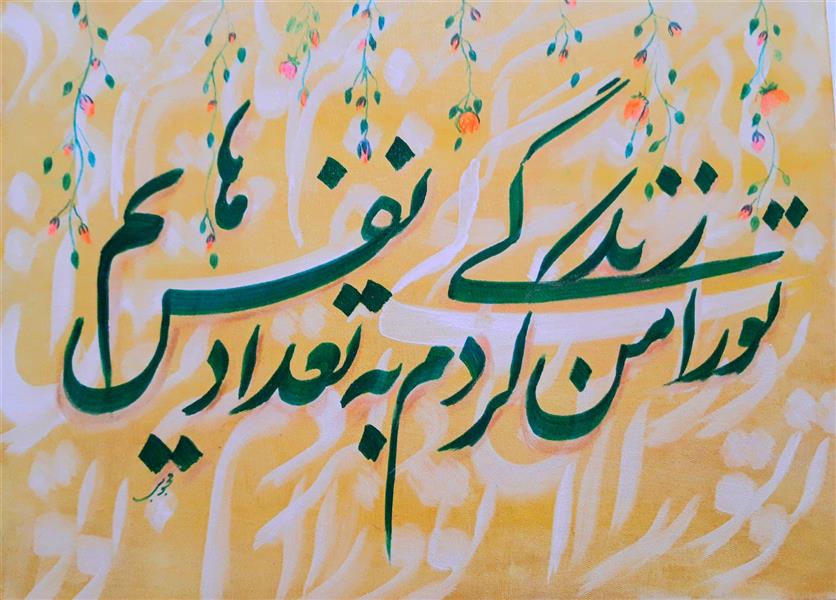 تو را من زندگی کردم به تعداد نفس هایم